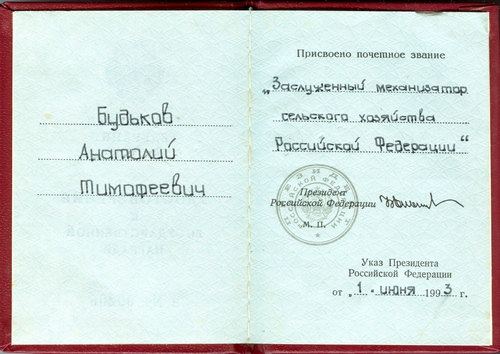 Будьков
Анатолий
Тимофеевич
Присвоено почетное звание
„Заслуженный механизатор
сельского хозяйства
Российской Федерации“
Президент
Российской Федерации
М. П.
Указ Президента
Российской Федерации
от „1“ июня 1993 г.